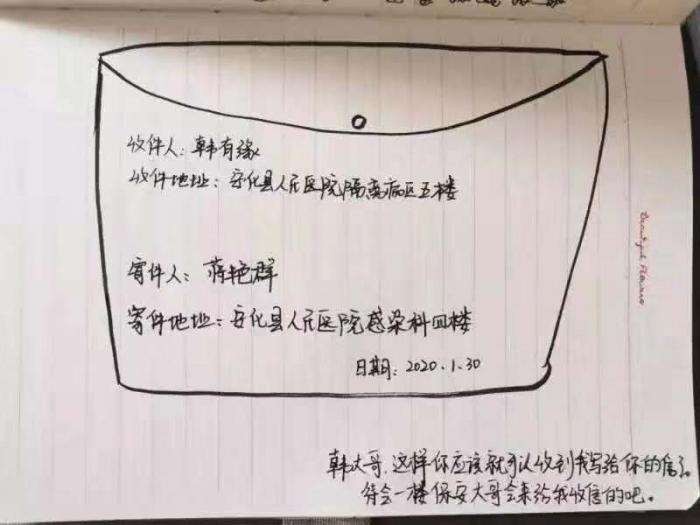 收件人：韩有缘
收件地址：安化县人民医院隔离病区五楼
寄件人：蒋艳群
寄件地址：安化县人民医院感染科四楼
日期：2020.1.30
Beautiful Flowers
韩大哥，这样你应该就可以收到我写给你的信了。
待会一楼保安大哥会来给我收信的吧。